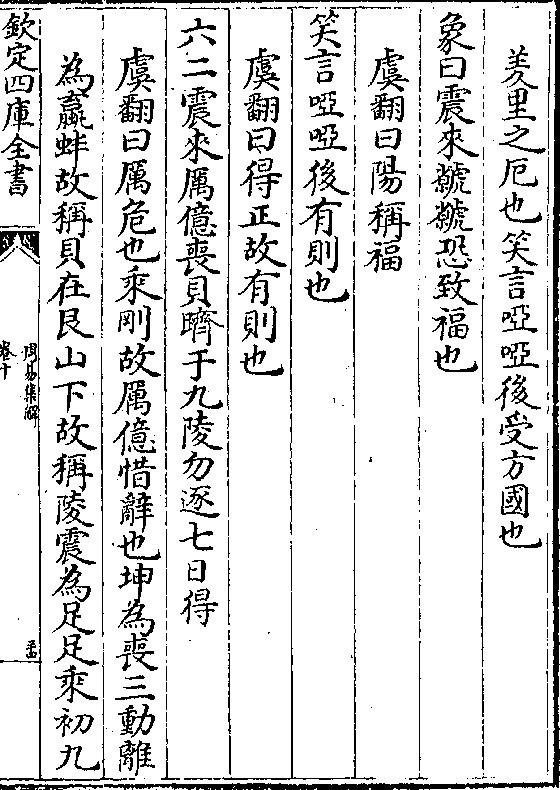 羑里之厄也笑言啞啞後受方國也
象曰震來虩虩恐致福也
虞翻曰陽稱福
笑言啞啞後有則也
虞翻曰得正故有則也
六二震來厲億喪貝躋于九陵勿逐七日得
虞翻曰厲危也乘剛故厲億惜辭也坤為喪三動離
為蠃蚌故稱貝在艮山下故稱陵震為足足乘初九
欽定四庫全書
周易集解
卷十